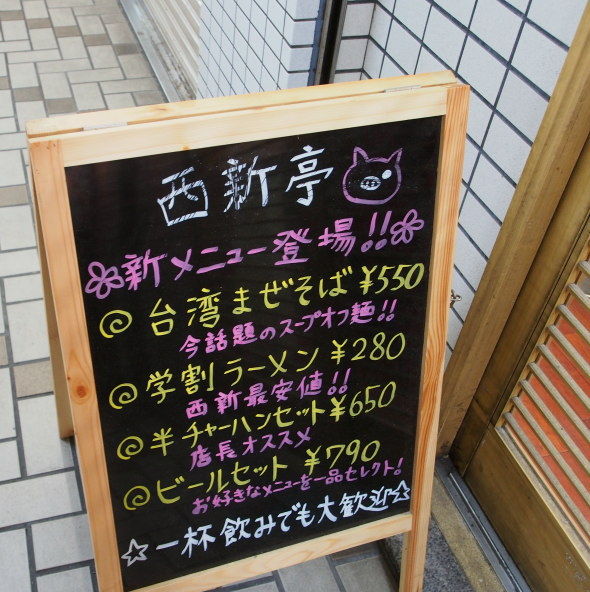 西新亭
新メニュー登場!!
台湾まぜそば ¥550
今話題のスープオフ麺!!
学割ラーメン ¥280
西新最安値!!
半チャーハンセット ¥650
店長オススメ
ビールセット ¥790
お好きなメニューを一品セレクト!
☆一杯飲みでも大歓迎☆